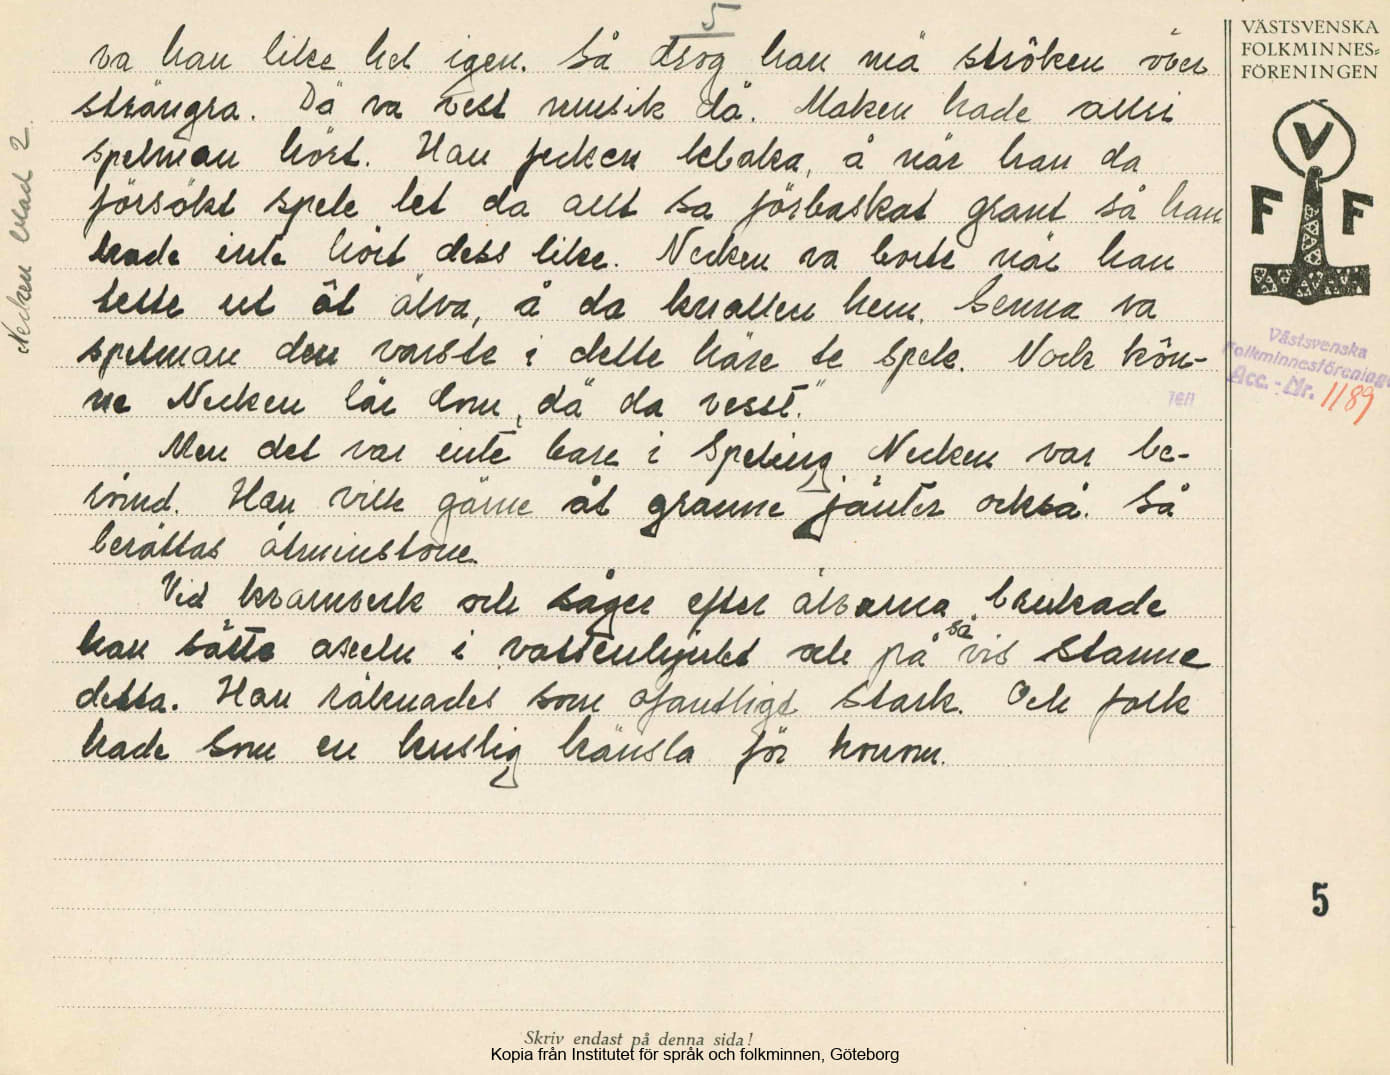 5
va han like hel igen. Så drog han mä ströken över
strängra. Dä va vest musik dä. Maken hade alli
spelman hört. Han fecken tebaka, å när han da
försökt spele let da allt sa förbaskat grant så han
hade inte hört dess like. Necken va borte när han
tette ut åt älva, å da knallen hem. Senna va
spelman den varste i dette häre te spele. Nock kön-
ne Necken lär dom, dä da vesst."
Men det var inte bare i speling Necken var be-
vånd. Han ville gärne åt granne jänter också. Så
berättas åtminstone.
Vid kvarnverk och såger efter älvarna brukade
han sätte axeln i vattenhjulet och på så vis stanne
detta. Han räknades som ofantligt stark. Och folk
hade som en kuslig känsla för honom.
Necken blad 2.
VÄSTSVENSKA
FOLKMINNES-
FÖRENINGEN
V
F F
Västsvenska
Folkminnesförening
Acc.-Nr. 1189
5
Skriv endast på denna sida!
Kopia från Institutet för språk och folkminnen, Göteborg